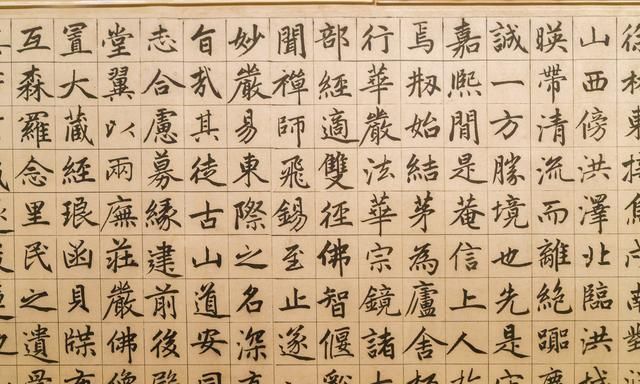 山西傍洪澤北臨洪
暎帶清流而離絕
誠一方勝境也先是
嘉熙間是菴信上人
焉剏始結茅為廬舍
行華嚴法華宗鏡諸
部經適雙徑佛智偃
聞禪師飛錫至止遂
妙嚴易東際之名深
旨哉其徒古山道安
志合慮募緣建前後
堂翼以兩廡莊嚴佛
置大藏經琅函貝牒
互森羅念里民之遺